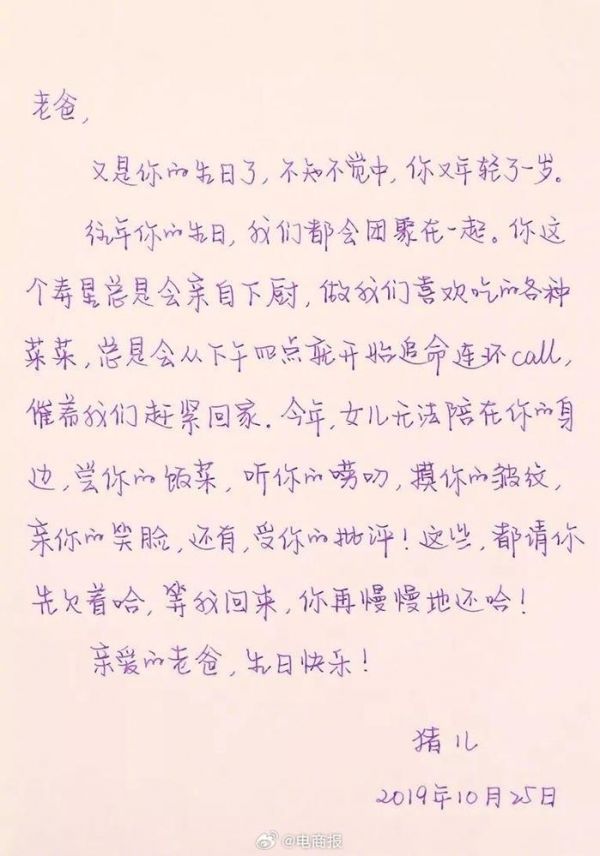 老爸，
又是你的生日了，不知不觉中，你又年轻了一岁。
往年你的生日，我们都会团聚在一起。你这
个寿星总是会亲自下厨，做我们喜欢吃的各种
菜菜，总是会从下午四点就开始追命连环call，
催着我们赶紧回家。今年，女儿无法陪在你的身
边，尝你的饭菜，听你的唠叨，摸你的皱纹，
亲你的笑脸，还有，受你的批评！这些，都请你
先欠着哈，等我回来，你再慢慢地还哈！
亲爱的老爸，生日快乐！
猪儿
2019年10月25日
@电商报